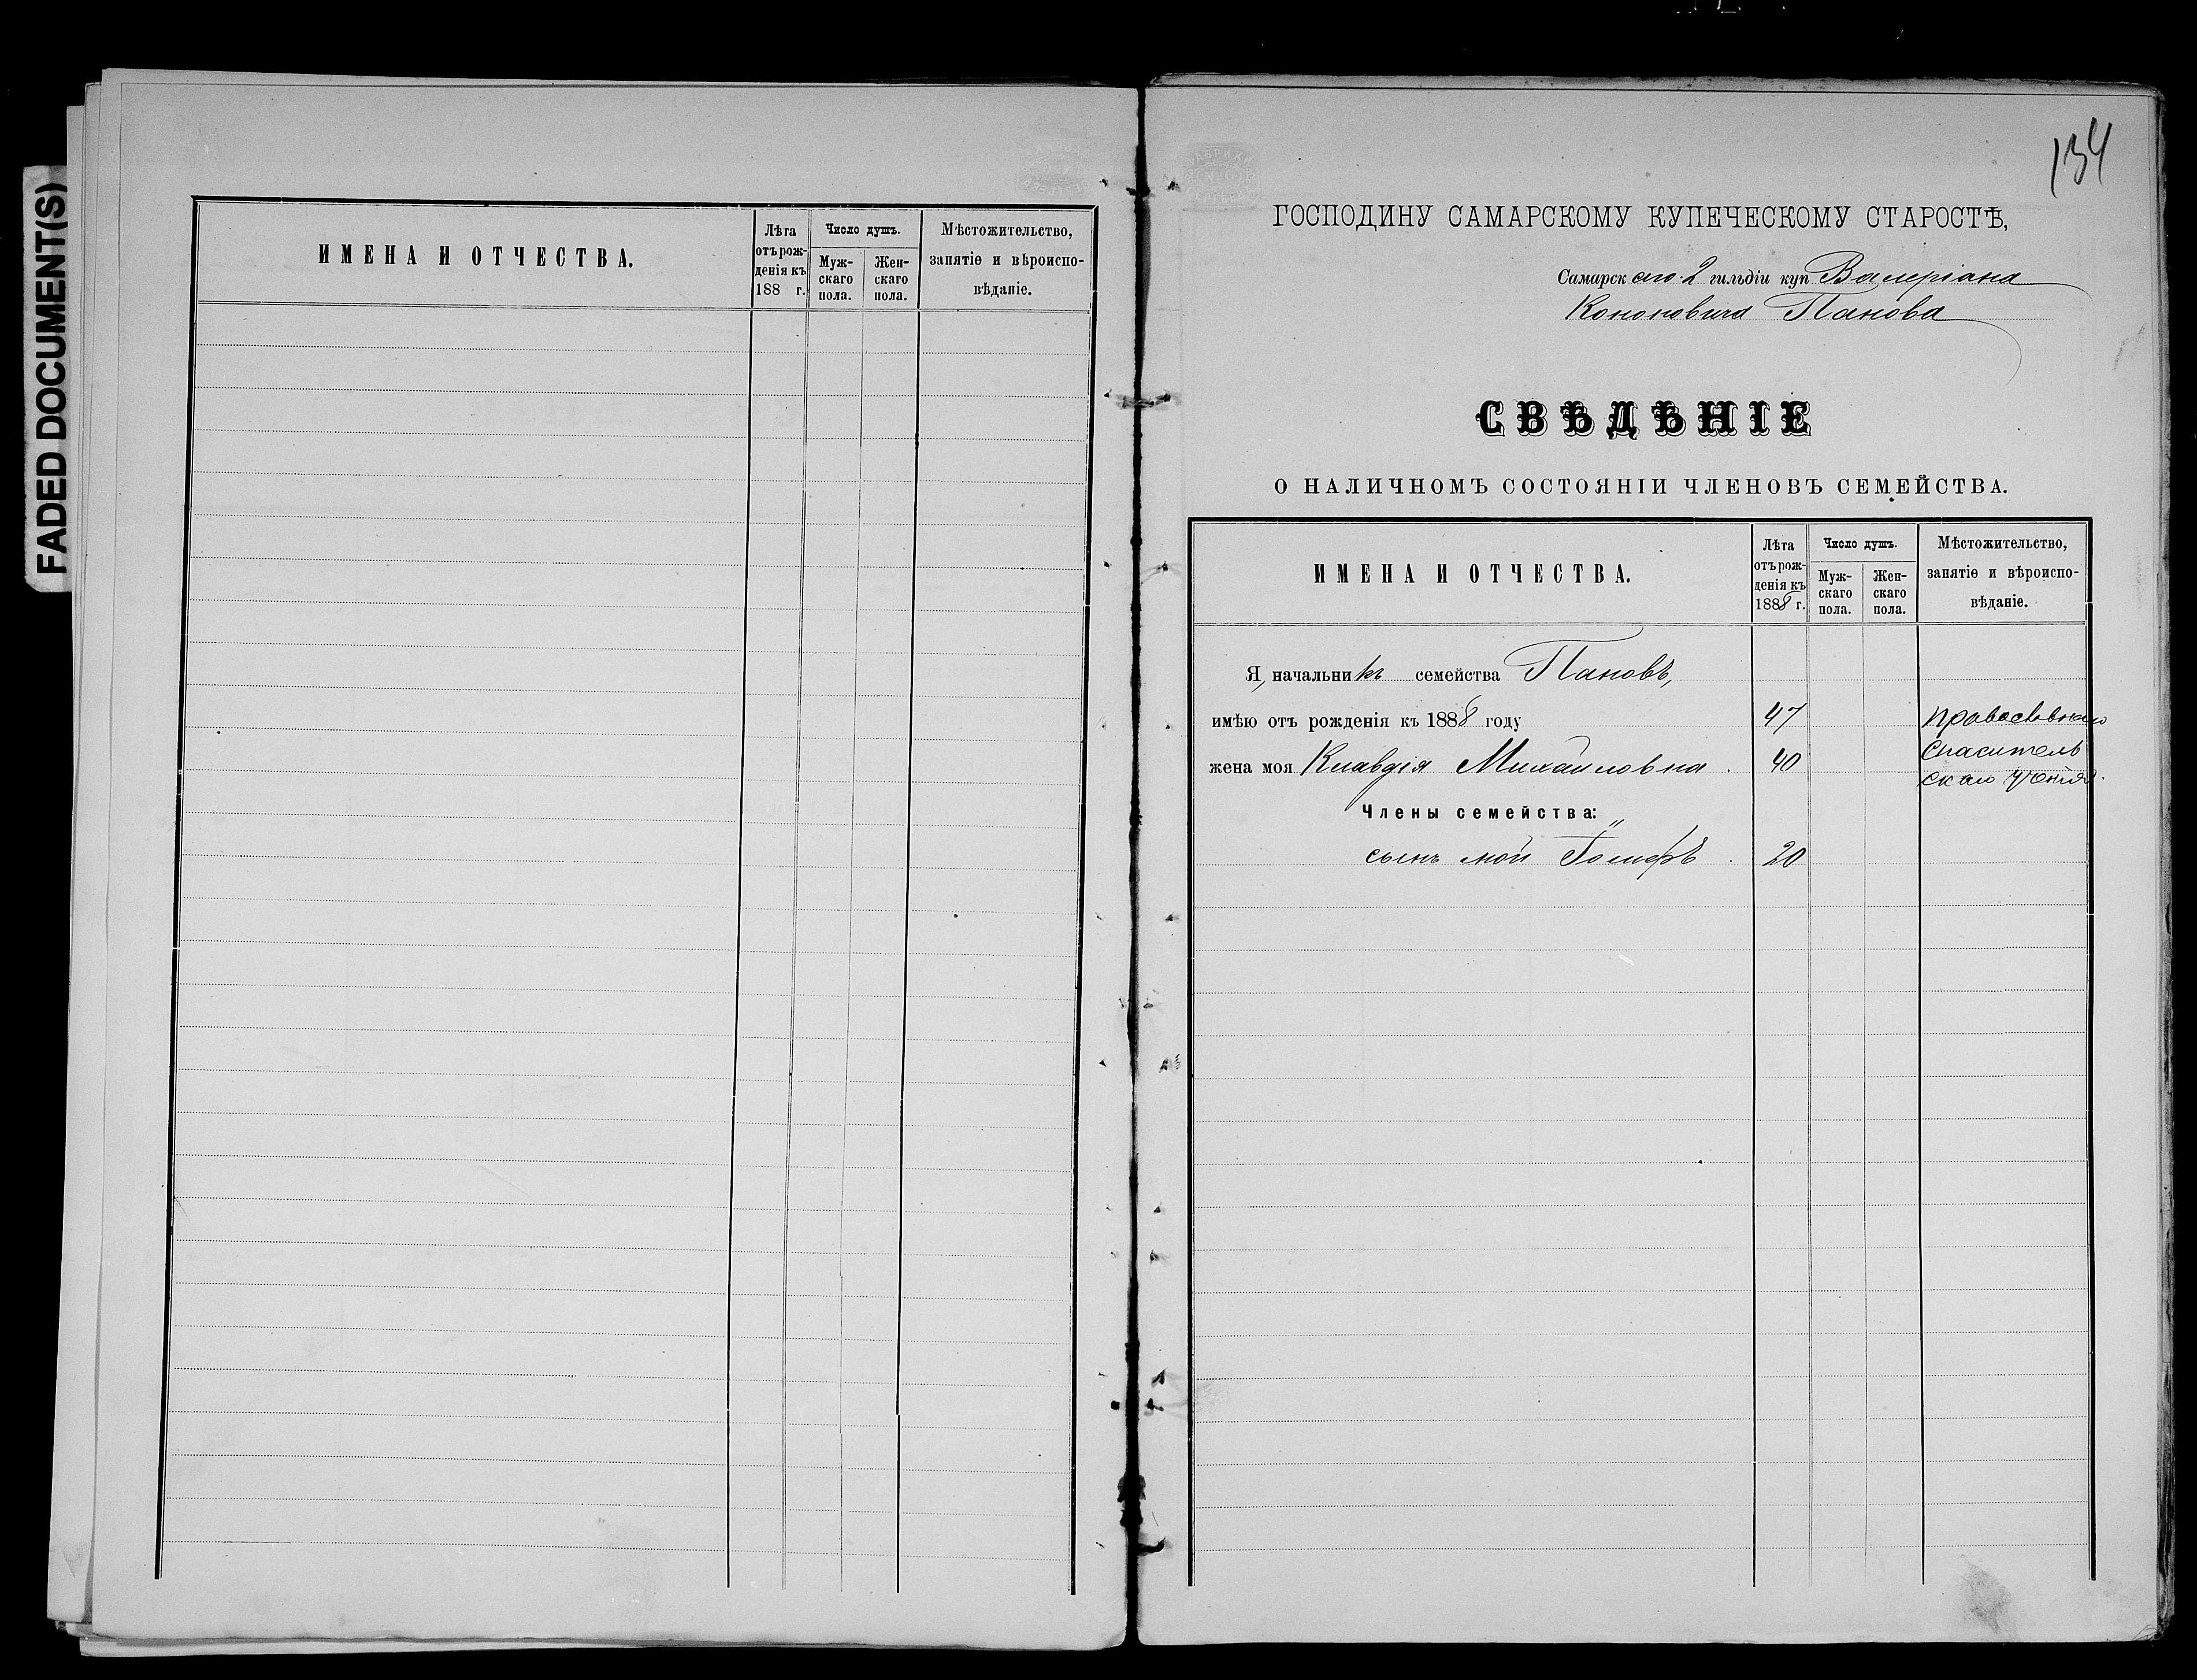 FADED DOCUMENT(S)
ИМЕНА И ОТЧЕСТВА.
Лѣта отъ рожденія къ 188 г.
Число душъ.
Мужскаго пола.
Женскаго пола.
Мѣстожительство, занятіе и вѣроисповѣданіе.
134
ГОСПОДИНУ САМАРСКОМУ КУПЕЧЕСКОМУ СТАРОСТѢ,
Самарскаго 2 гильдіи куп Валеріана
Кононовича Панова
СВѢДѢНІЕ
О НАЛИЧНОМЪ СОСТОЯНІИ ЧЛЕНОВЪ СЕМЕЙСТВА.
ИМЕНА И ОТЧЕСТВА.
Лѣта отъ рожденія къ 1888 г.
Число душъ.
Мужскаго пола.
Женскаго пола.
Мѣстожительство, занятіе и вѣроисповѣданіе.
Я, начальникъ семейства Пановъ,
имѣю отъ рожденія къ 1888 году 47 православнаго
жена моя Клавдія Михайловна . 40 Спаситель
скаго
Члены семейства:
сынъ мой . 20